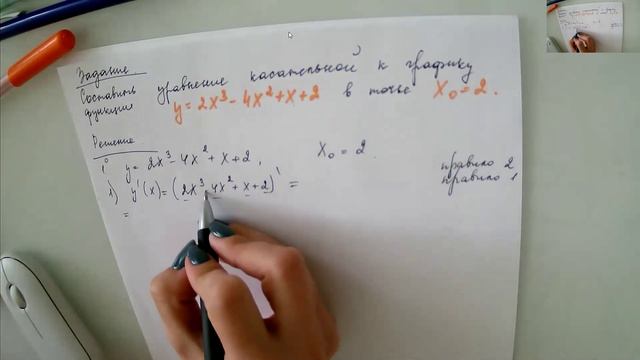 Задание.
Составить уравнение касательной к графику
функции y = 2x³ - 4x² + x + 2 в точке x₀ = 2.
Решение
y = 2x³ - 4x² + x + 2, x₀ = 2.
1) y'(x) = (2x³ - 4x² + x + 2)' =
=
правило 2
правило 1